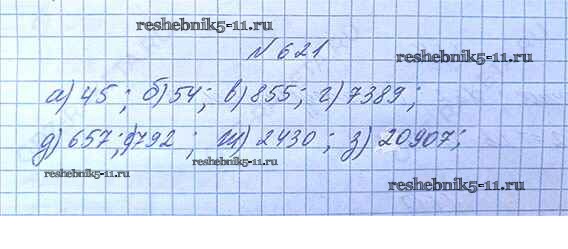 reshebnik5-11.ru
№ 621
reshebnik5-11.ru
а) 45 ; б) 54 ; в) 855 ; г) 7389 ;
д) 657 ; е) 792 ; ж) 2430 ; з) 20907 ;
reshebnik5-11.ru
reshebnik5-11.ru
reshebnik5-11.ru